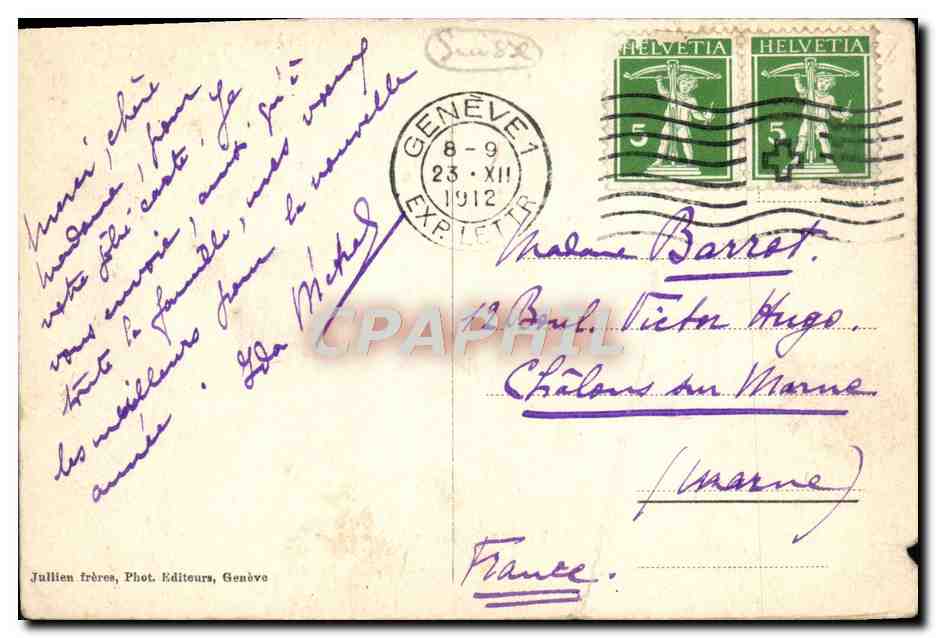 Suisse
HELVETIA
HELVETIA
5
5
GENÈVE 1
8-9
23·XII
1912
EXP. LETTR
Merci, chère
Madame, pour
votre jolie carte, je
vous envoie, ainsi qu'à
toute la famille, mes vœux
les meilleurs pour la nouvelle
année. Ida Michel
Madame Barrot.
12 Boul. Victor Hugo.
Châlons sur Marne
(Marne)
France.
CPAPHIL
Jullien frères, Phot. Editeurs, Genève